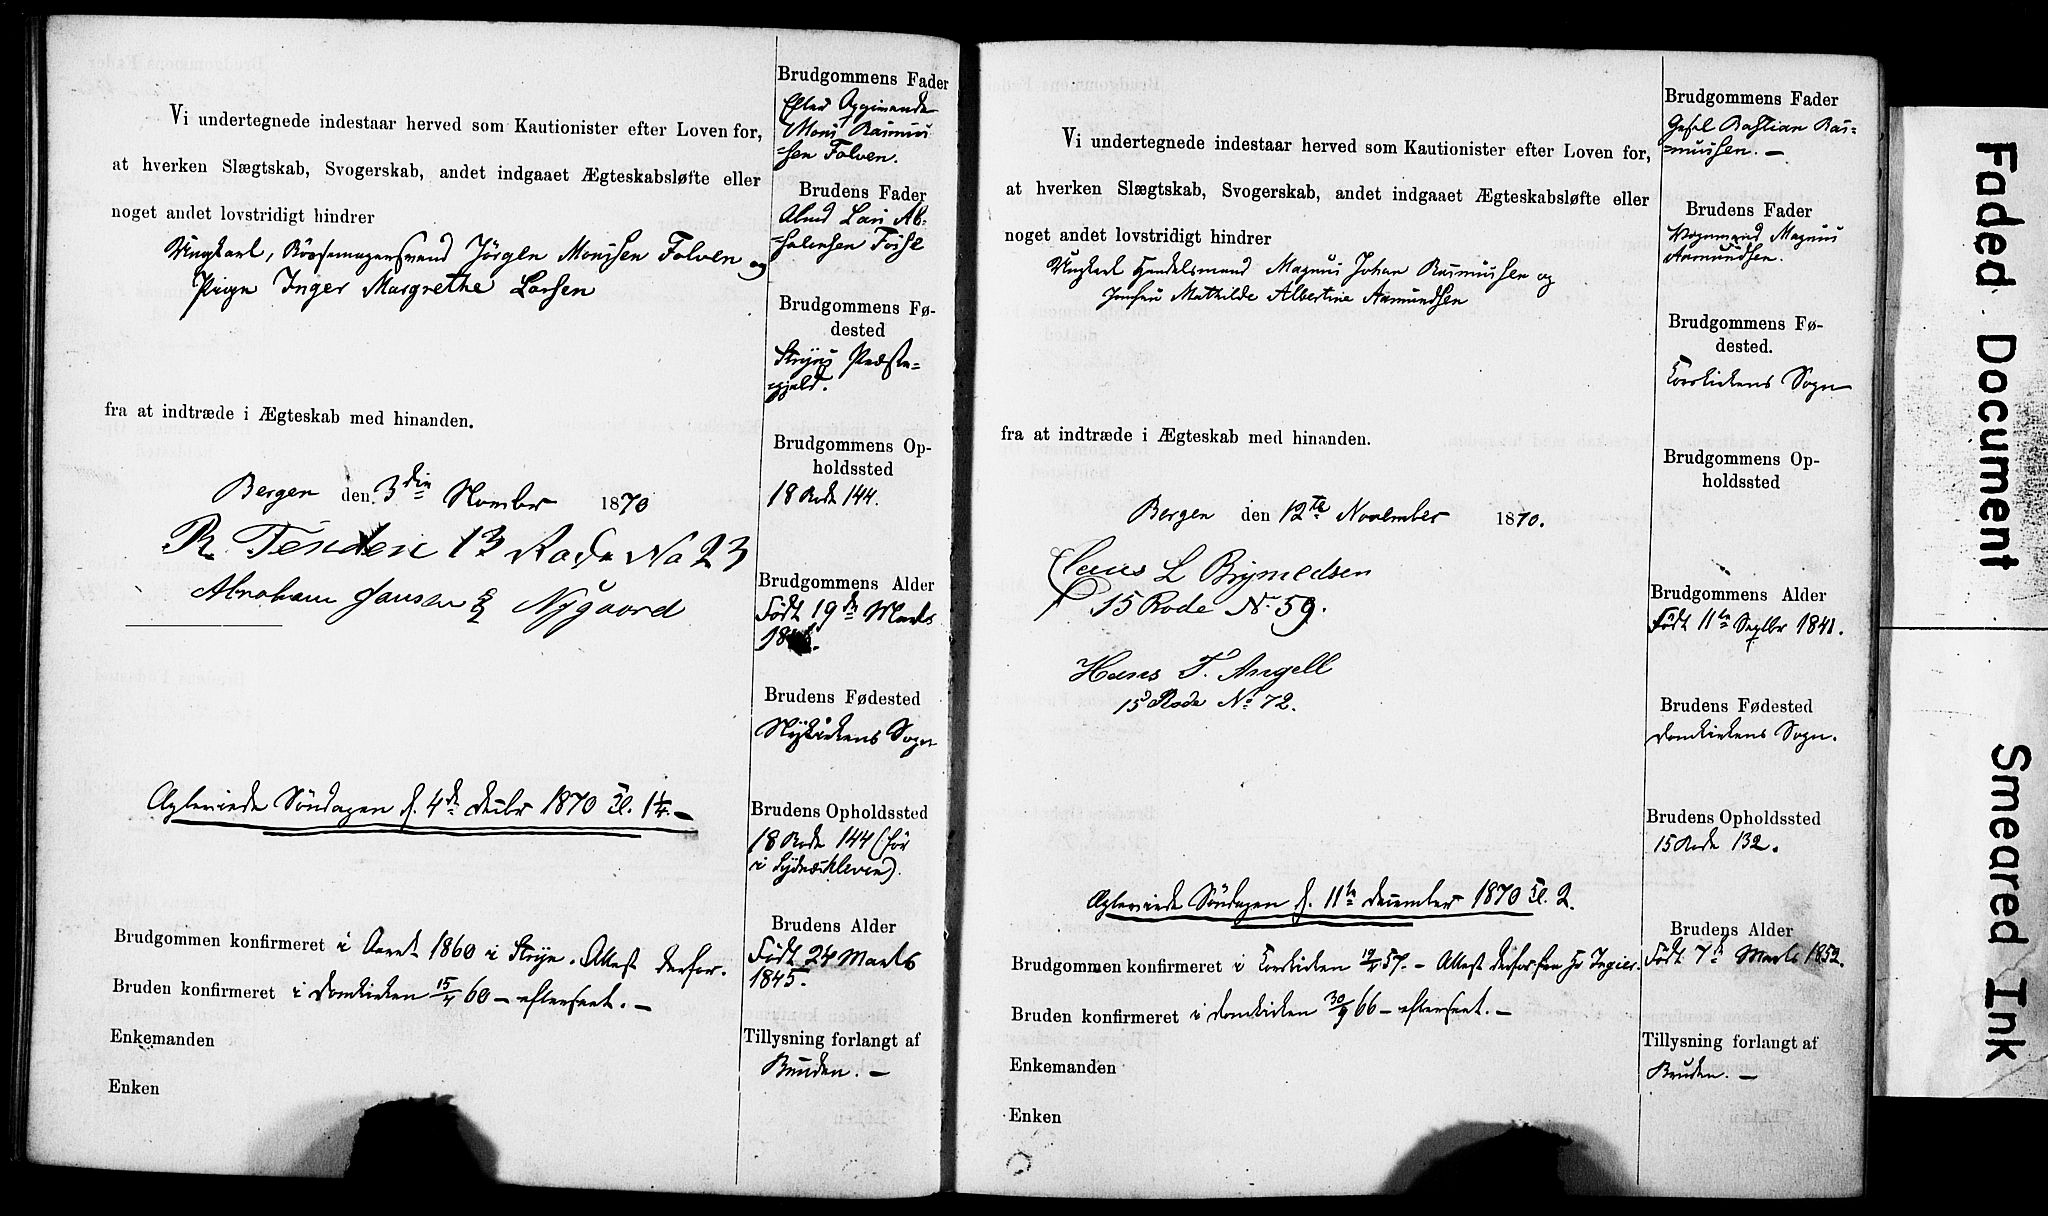 Vi undertegnede indestaar herved som Kautionister efter Loven for,
at hverken Slægtskab, Svogerskab, andet indgaaet Ægteskabsløfte eller
noget andet lovstridigt hindrer
Ungkarl, Børsemagersvend Jørgen Monssen Folven og
Pigen Inger Margrethe Larsen
fra at indtræde i Ægteskab med hinanden.
Bergen den 3die November 1870
R. Tenden 13 Rode No 23
Abraham Jansen Nygaard
Aglysede Søndagen d. 4de Decbr 1870 Kl. 1¼. —
Brudgommen konfirmeret i Aaret 1860 i Stryn. Attest derfor.
Bruden konfirmeret i Domkirken 15/4 60 — efterseet. —
Enkemanden
Enken
Brudgommens Fader
Mons Rasmus=
=sen Folven.
Brudens Fader
Lars Ab=
=salonsen
Brudgommens Fø-
dested
Stryns Præste=
=gjeld.
Brudgommens Op-
holdssted
18 Rode 144.
Brudgommens Alder
Født 19de Marts
Brudens Fødested
Nykirkens Sogn
Brudens Opholdssted
18 Rode 144 (før
i Sydneskleven).
Brudens Alder
Født 24 Marts
1845.
Tillysning forlangt af
Bruden. —
Vi undertegnede indestaar herved som Kautionister efter Loven for,
at hverken Slægtskab, Svogerskab, andet indgaaet Ægteskabsløfte eller
noget andet lovstridigt hindrer
Ungkarl Handelsmand Magnus Johan Rasmussen og
Jomfru Mathilde Albertine Aamundsen
fra at indtræde i Ægteskab med hinanden.
Bergen den 12te November 1870.
Claus L Brynildsen
15 Rode No. 59.
Hans T. Angell
15 Rode No 72.
Aglysede Søndagen d. 11te December 1870 Kl. 2.
Brudgommen konfirmeret i Korskirken 57. — Attest derfor fra
Bruden konfirmeret i Domkirken 30/9 66 — efterseet. —
Enkemanden
Enken
Brudgommens Fader
Bastian Ras=
=mussen. —
Brudens Fader
Vognmand Magnus
Aamundsen.
Brudgommens Fø-
dested.
Korskirkens Sogn
Brudgommens Op-
holdssted
Brudgommens Alder
Født 11te Septbr 1841.
Brudens Fødested
Domkirkens Sogn.
Brudens Opholdssted
15 Rode 132.
Brudens Alder
Født 7de Marts 1852.
Tillysning forlangt af
Bruden. —
Faded Document
Smeared Ink